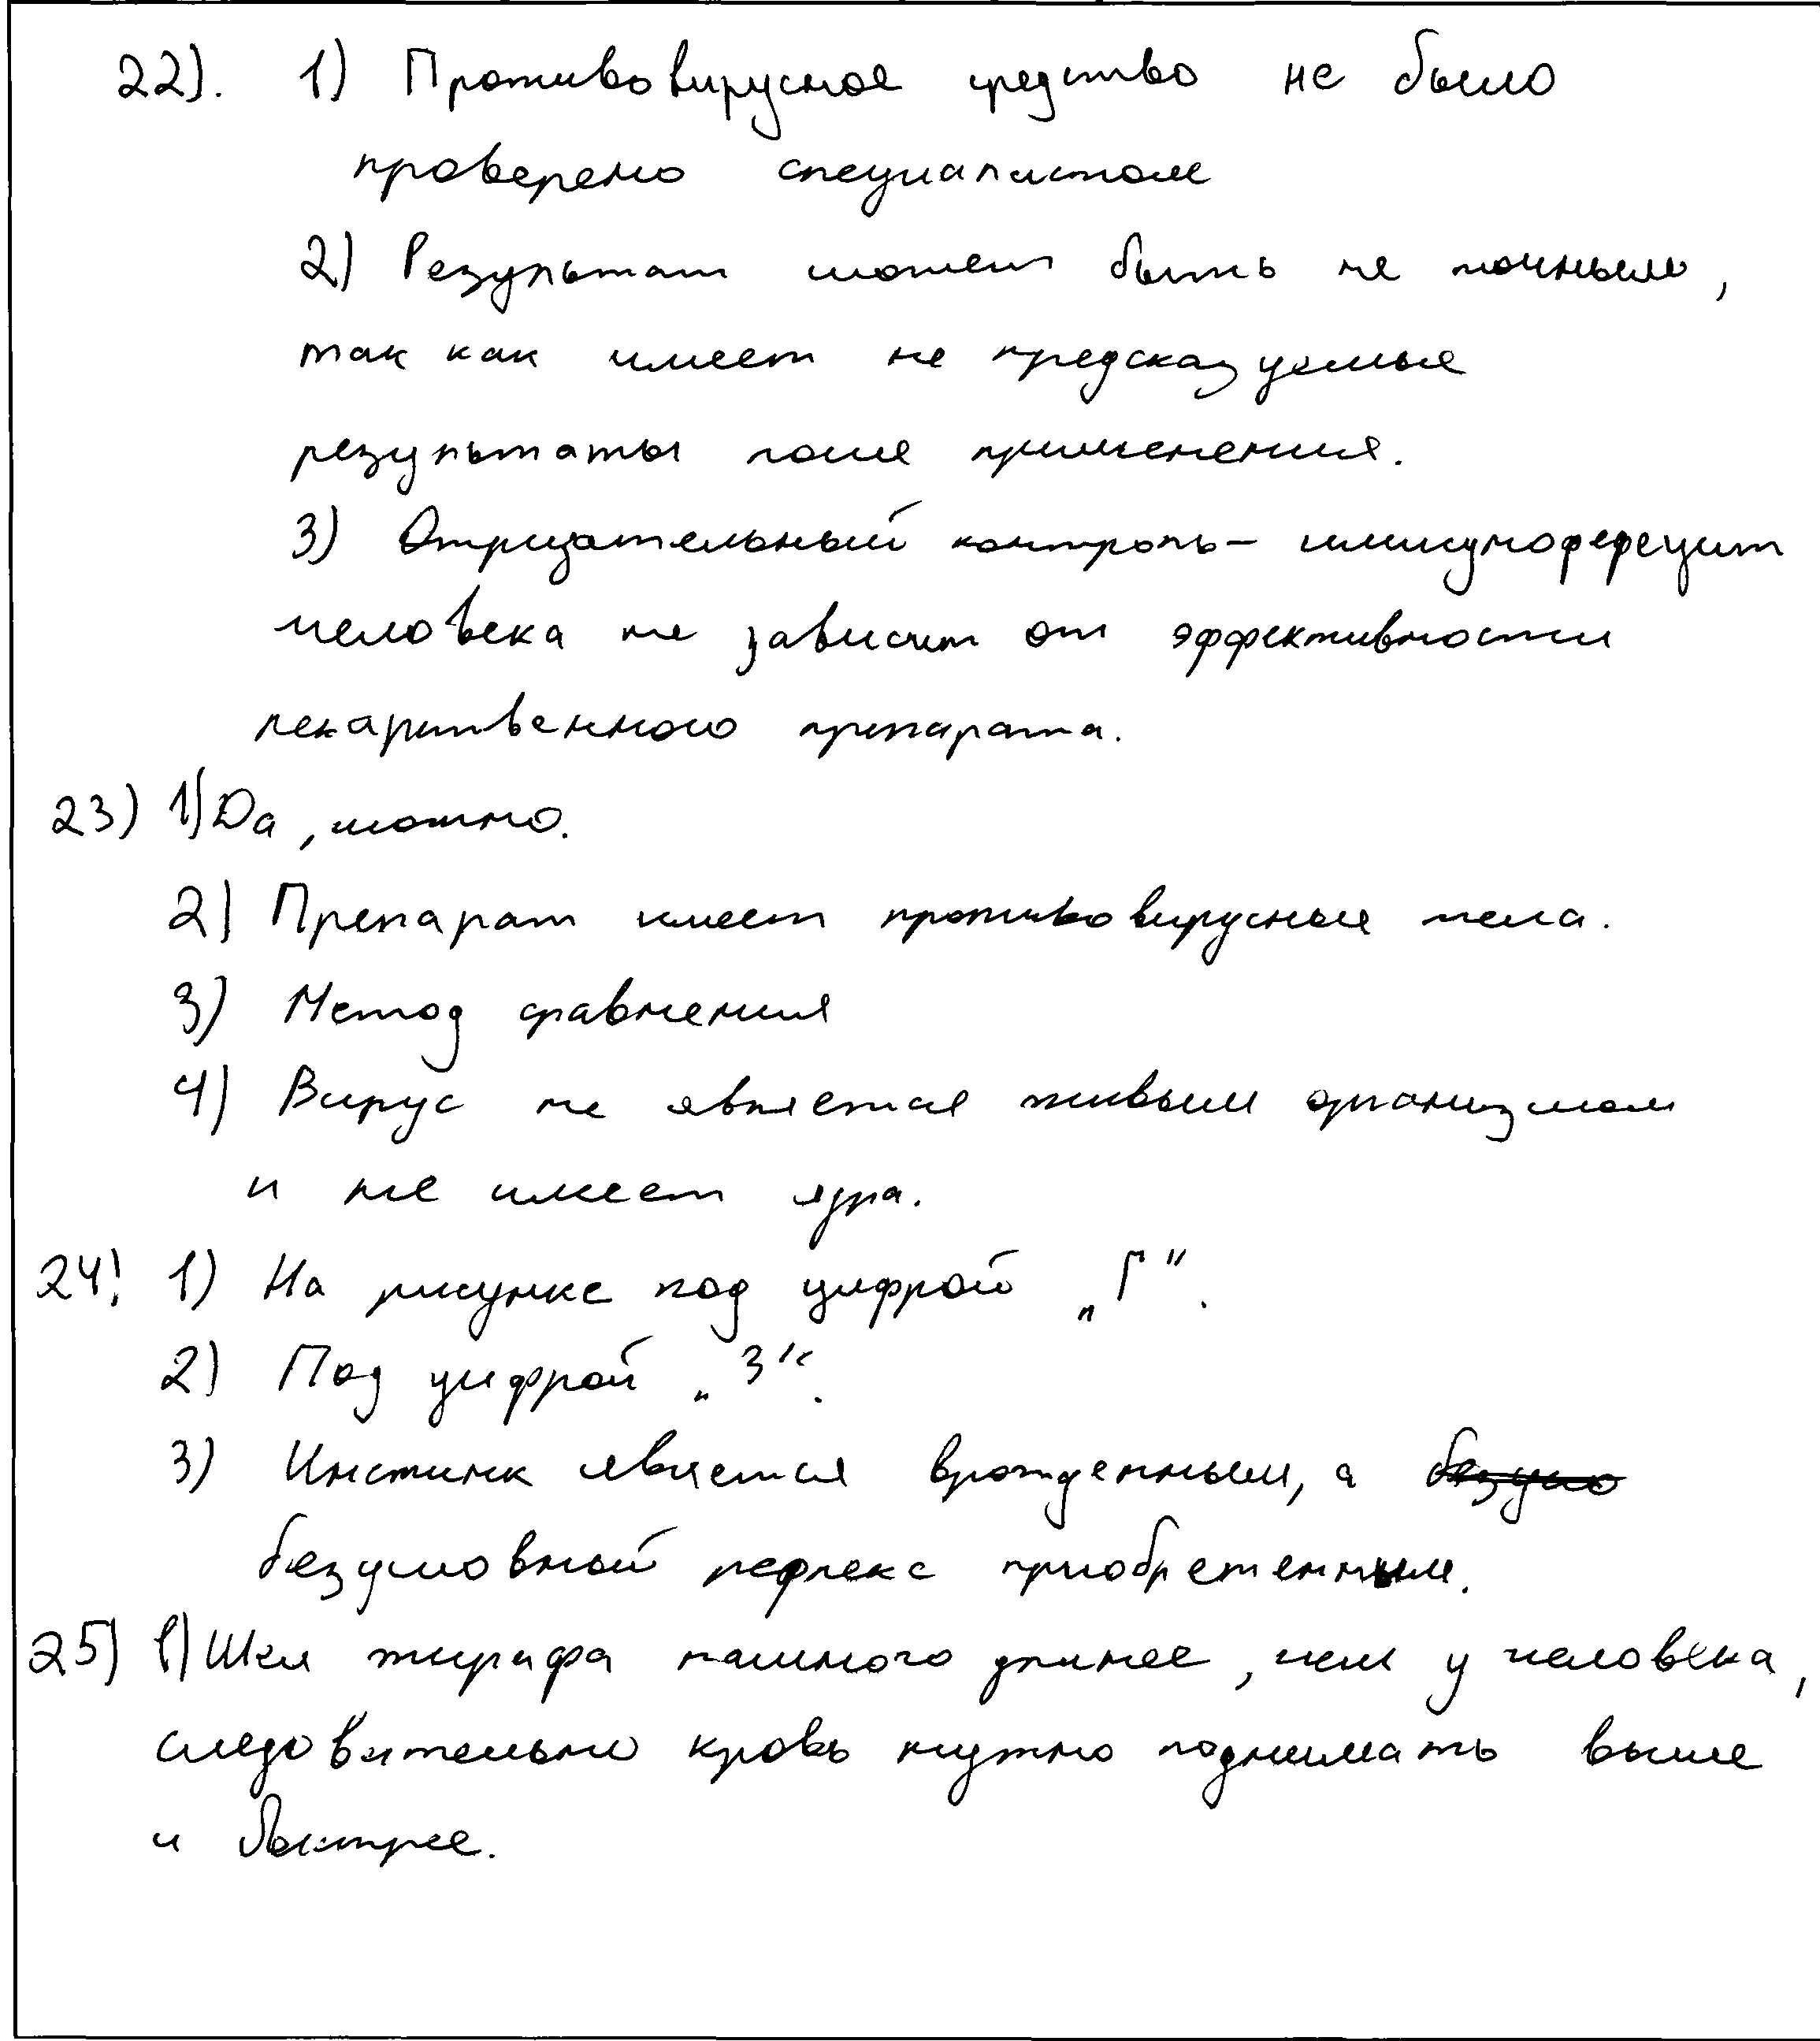 22). 1) Противовирусное средство не было
проверено специалистом
2) Результат может быть не точным,
так как имеет не предсказуемые
результаты после применения.
3) Отрицательный контроль – иммунодефецит
человека не зависит от эффективности
лекарственного препарата.
23) 1) Да, можно.
2) Препарат имеет противовирусные тела.
3) Метод сравнения
4) Вирус не является живым организмом
и не имеет ядра.
24) 1) На рисунке под цифрой „Г".
2) Под цифрой „3".
3) Инстинк является врожденным, а безусло
безусловный рефлекс приобретенным.
25) 1) Шея жирафа намного длинее, чем у человека,
следовательно кровь нужно поднимать выше
и быстрее.